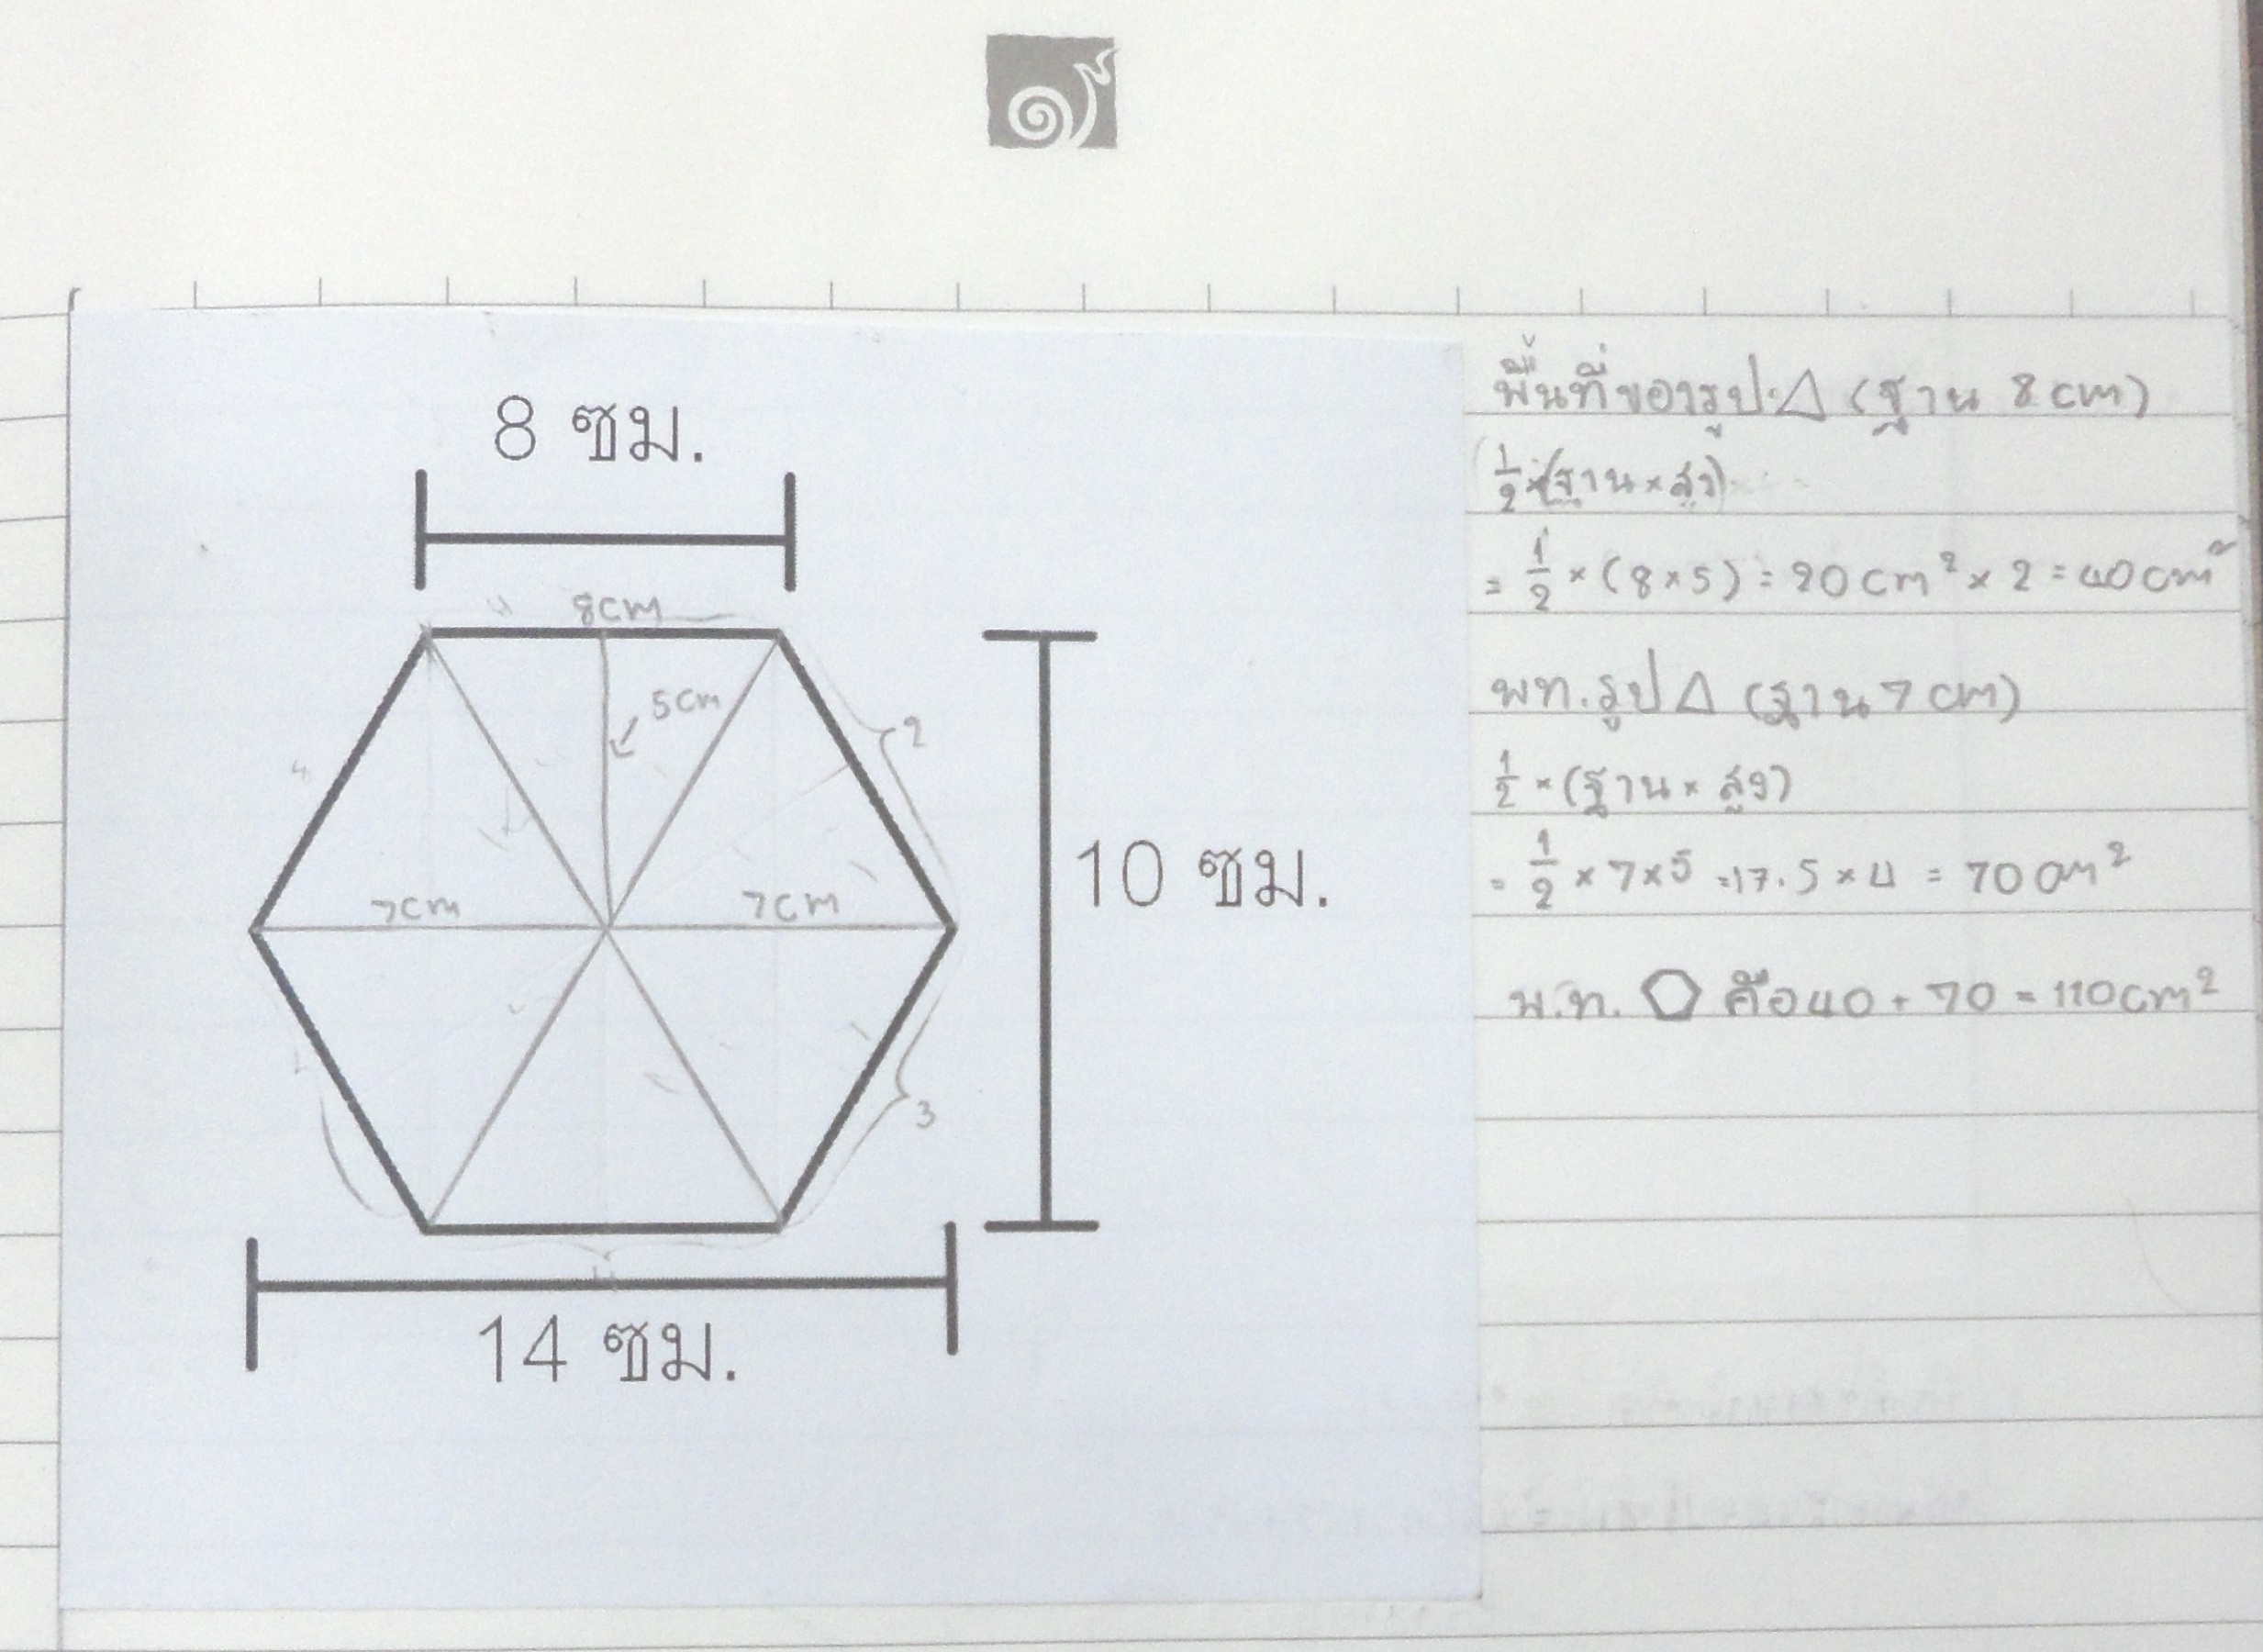 8 ซม.
8cm
5cm
2
4
7cm
7cm
10 ซม.
3
4
14 ซม.
พื้นที่ของรูป △ (ฐาน 8 cm)
1/2 × (ฐาน × สูง)
= 1/2 × (8 × 5) = 20 cm² × 2 = 40 cm²
พท. รูป △ (ฐาน 7 cm)
1/2 × (ฐาน × สูง)
= 1/2 × 7 × 5 = 17.5 × 4 = 70 cm²
พ.ท. ⬠ คือ 40 + 70 = 110 cm²